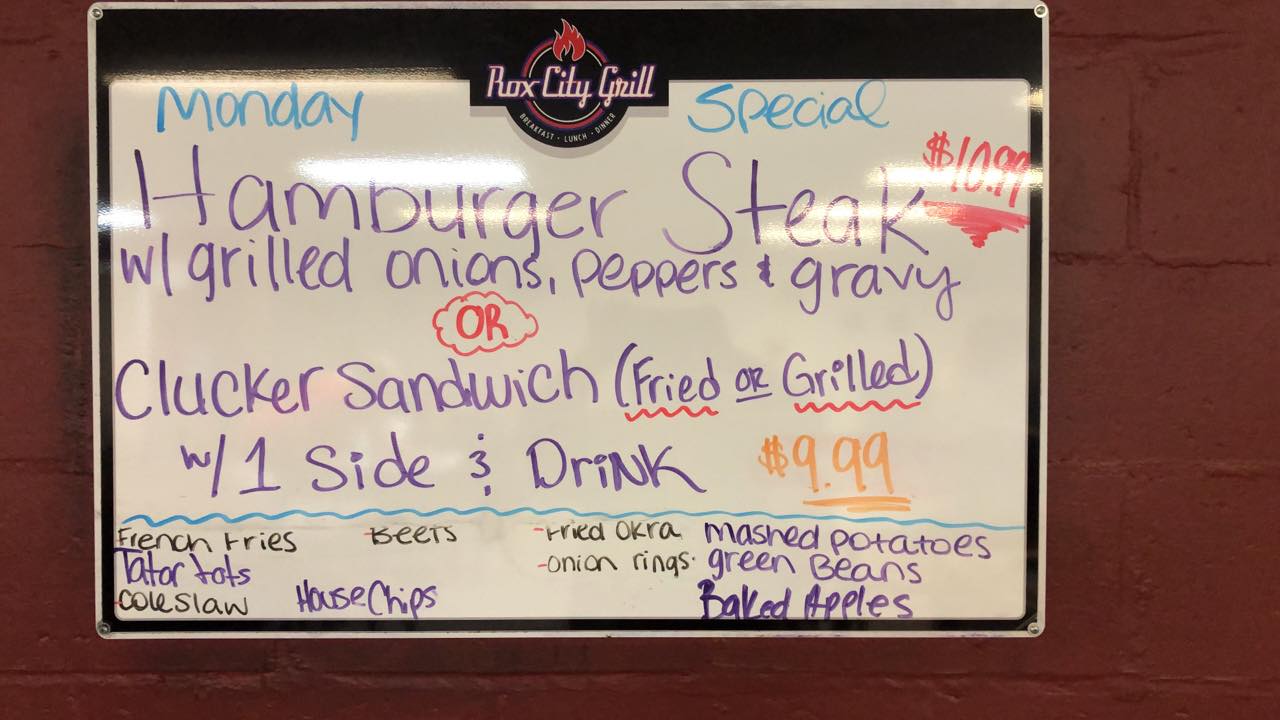 Rox City Grill
BREAKFAST · LUNCH · DINNER
Monday Special
Hamburger Steak $10.99
w/ grilled onions, peppers & gravy
OR
Clucker Sandwich (Fried OR Grilled)
w/1 Side & DRINK $9.99
French Fries -Beets -Fried Okra Mashed potatoes
Tator tots -onion rings green Beans
-coleslaw House Chips Baked Apples